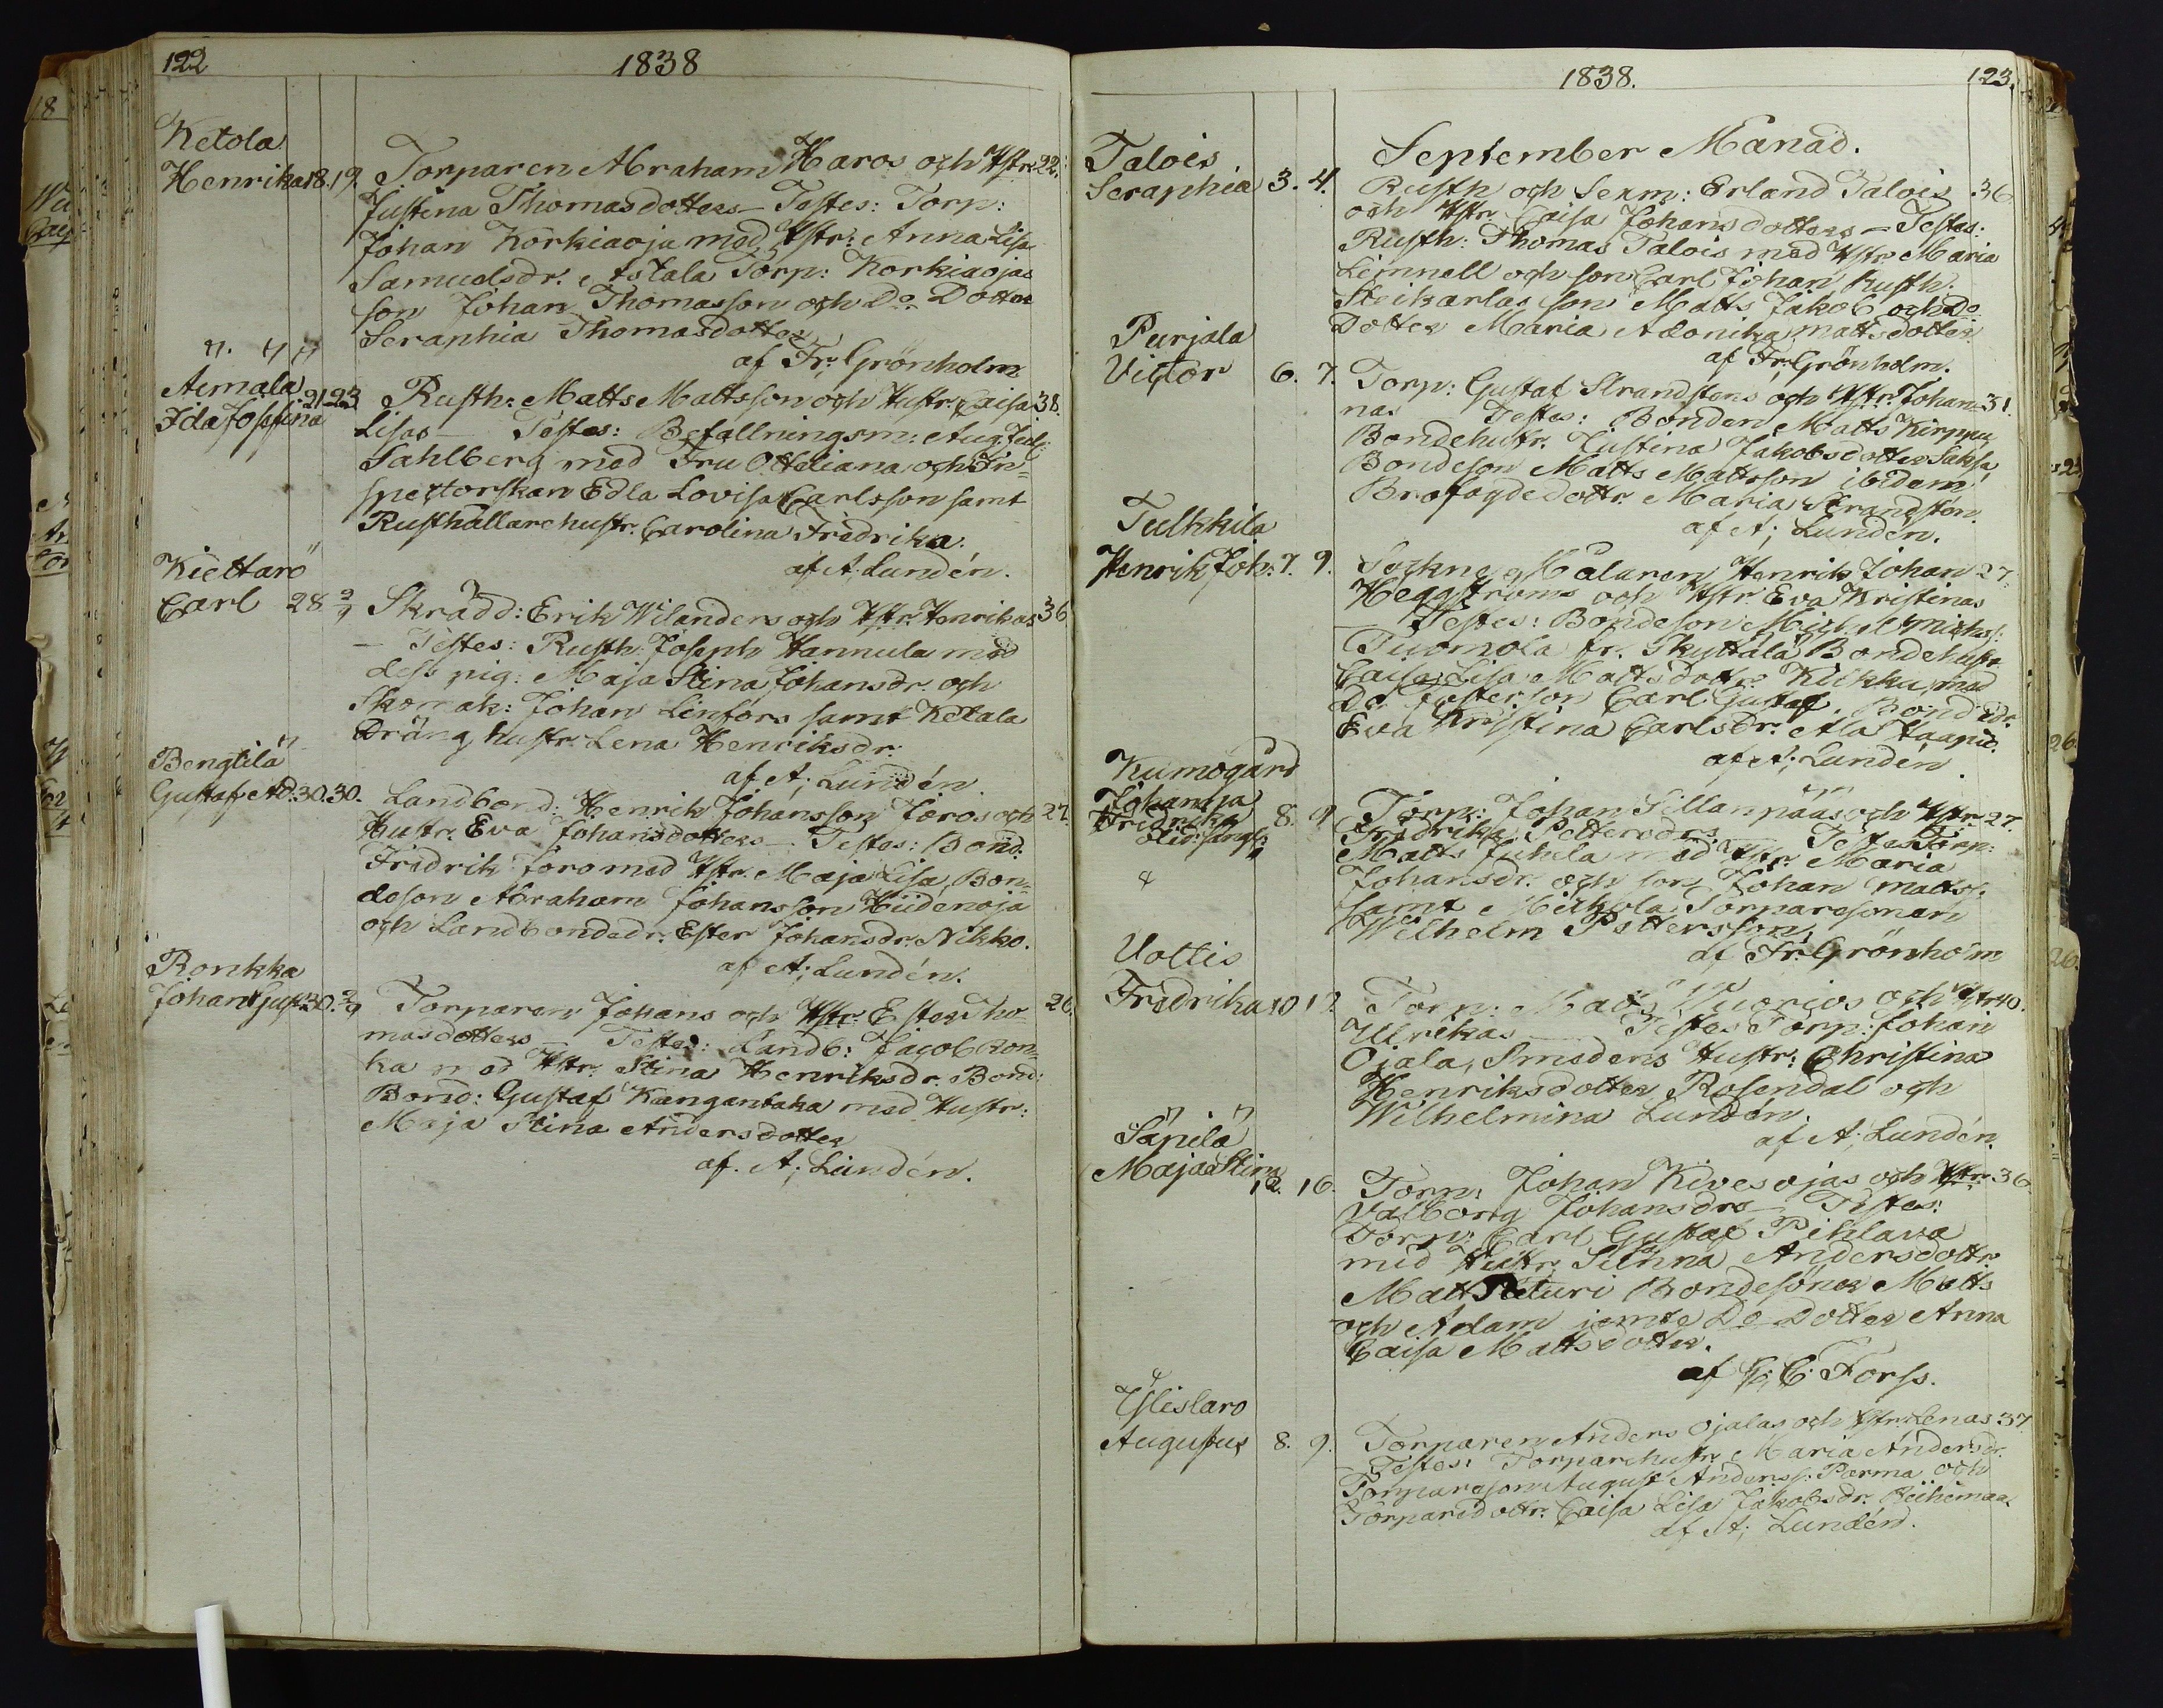 122
1838
Ketola
Henrika 18. 19. Torparen Abraham Haros och Hstr. 22.
Justina Thomasdotters – Testes: Torp:
Johan Korkiaoja med Hstr: Anna Lisa
Samuelsdr. Astala Torp: Korkiaojas
son Johan Thomasson och Do Dotter
Seraphia Thomasdotter
af Fr; Grönholm
Äimälä
Ida Josefina 21 23 Rusth: Matts Mattsson och Hustr: Caisa 38.
Lisas – Testes: Befallningsm: Aug. Jul:
Sahlberg med Fru Ottiliana och In-
spectorskan Edla Lovisa Carlsson samt
Rusthållarehustr. Carolina Fredrika.
af A; Lundén.
Kiettarö
Carl 28 2/9 Skrädd: Erik Wilanders och Hstr. Henrikas 36
– Testes: Rusth: Joseph Hannula med
dess pig: Maja Stina Johansdr. och
Skomak: Johan Linfors samt Ketala
Dräng hustr. Lena Henriksdr.
af A; Lundén.
Bengtilä
Gustaf Ad. 30. 30. Landbond: Henrik Johansson Joros och 27.
Hustr. Eva Johansdotters – Testes: Bond.
Fridrik Joro med Hstr. Maja Lisa, Bon-
deson Abraham Johansson Hiidenoja
och Landbondedr. Ester Johansdr. Nikko.
af A; Lundén.
Ronkka
Johan Gust. 30. 2/9 Torparen Johans och Hstr: Ester Tho- 26.
masdotters – Testes: Landb: Jacob Ron-
ka med Hstr. Stina Henriksdr. Bond:
Bond: Gustaf Kangantaka med Hustr:
Maja Stina Andersdotter
af. A; Lundén.
1838.
123.
September Månad.
Talois
Seraphia 3. 4. Rusth och Sexm: Erland Talois 36
och Hstr. Caisa Johansdotters – Testes:
Rusth: Thomas Talois med Hstr. Maria
Limnell och son Carl Johan, Rusth.
Steikarlas son Matts Jakob och Do
Dotter Maria Adonika Mattsdotter
af Fr; Grönholm.
Purjala
Victor 6. 7. Torp: Gustaf Strandstens och Hstr. Johan- 31.
nas Testes: Bonden Matts Kirppu
Bondehustr. Justina Jakobsdotter Saksa,
Bondeson Matts Mattsson ibidem
Brofogdedottr. Maria Strandstén.
af A; Lundén.
Tulkkila
Henrik Joh: 7. 9. Sockne Målaren Henrik Johan 27.
Heggströms och Hstr. Eva Kristinas
Testes: Bondeson Mich: Michelss:
Tuomola fr. Skyttälä Bondehustr
Caisa Lisa Mattsdottr. Kiikku, med
Do son Carl Gustaf. Bondedr.
Eva Kristina Carlsdr. Ala
af A; Lundén.
Kumogård
Johanna
Fredrika 8. 9 Torp: Johan Sillanpääs och Hstr 27.
Fredrika Pettersdrs. Testes Torp:
Matts Juhela med Hstr. Maria
Johansdr. och son Johan Matts:
samt Torparesonen
Wilhelm Pettersson
af Fr; Grönholm
Uottis
Fredrika 10 12. Torp: Matts Wuorios och Hstr 40.
Ulrikas – Testes Torp: Johan
Ojala, Smedens Hustr: Christina
Henriksdotter Rosendal och
Wilhelmina Lundén
af A; Lundén.
Säpilä
Maja Stina 12. 16. Torp: Johan Kivesojas och Hstr. 36
Valborg Johansdrs – Testes:
Torp: Carl Gustaf Pihlava
med Hustr. Sanna Andersdottr.
Matts Bondesöner Matts
och Adam jemte Do Dotter Anna
Caisa Mattsdotter.
af C; C. Forss.
Ylistaro
Augustus 8. 9. Torparen Anders Ojalas och Hstr. Lenas 37
Testes: Torparehustr. Maria Andersdr.
Torpareson August Anderss: Parma och
Torparedottr. Caisa Lisa Jakobsdr. Riihimaa
af A; Lundén.